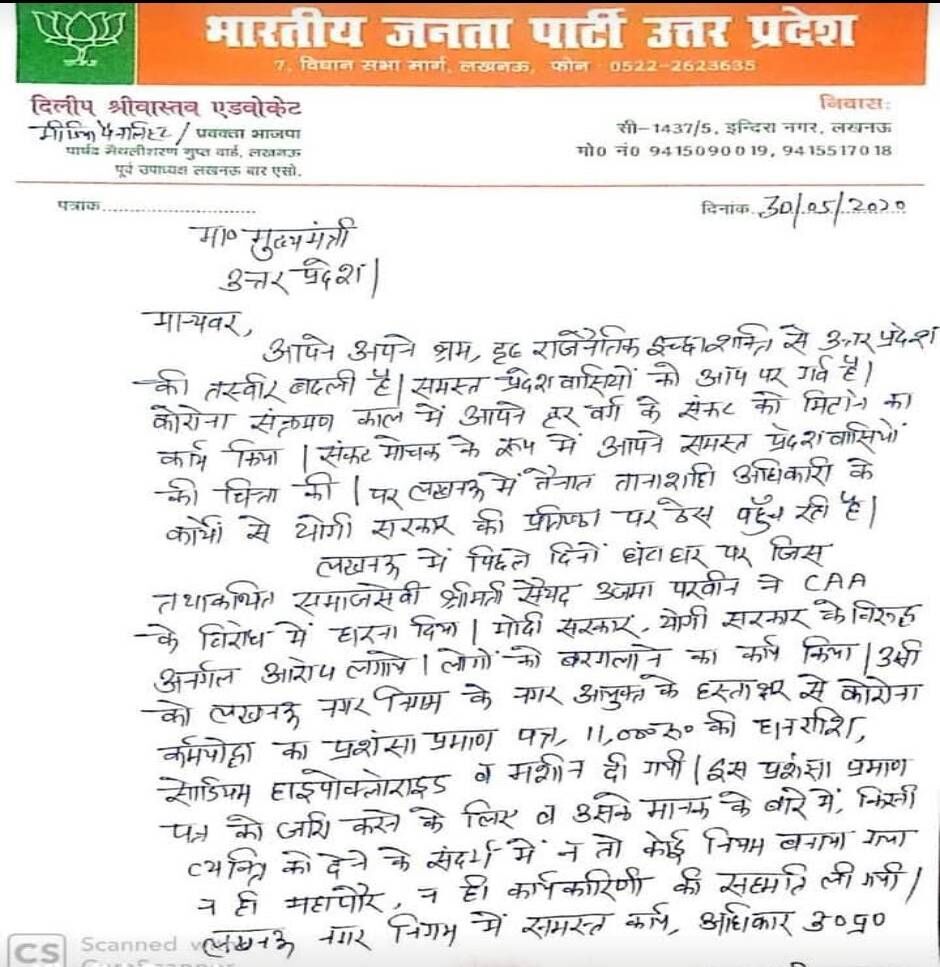 भारतीय जनता पार्टी उत्तर प्रदेश
7, विधान सभा मार्ग, लखनऊ, फोन 0522-2623635
दिलीप श्रीवास्तव एडवोकेट
/ प्रवक्ता भाजपा
पार्षद मैथलीशरण गुप्त वार्ड, लखनऊ
पूर्व उपाध्यक्ष लखनऊ बार एसो.
निवास:
सी-1437/5, इन्दिरा नगर, लखनऊ
मो0 नं0 9415090019, 9415517018
पत्रांक..............................
दिनांक 30/05/2020
मा० मुख्यमंत्री
उत्तर प्रदेश|
मान्यवर,
आपने अपने श्रम, दृढ़ राजनैतिक इच्छाशक्ति से उत्तर प्रदेश
की तस्वीर बदली है| समस्त प्रदेशवासियों को आप पर गर्व है|
कोरोना संक्रमण काल में आपने हर वर्ग के संकट को मिटाने का
कार्य किया| संकट मोचक के रूप में आपने समस्त प्रदेशवासियों
की चिन्ता की| पर लखनऊ में तैनात तानाशाही अधिकारी के
कार्यों से योगी सरकार की प्रतिष्ठा पर ठेस पहुँच रही है|
लखनऊ में पिछले दिनों घंटाघर पर जिस
तथाकथित समाजसेवी श्रीमती सैयद उजमा परवीन ने CAA
के विरोध में धरना दिया| मोदी सरकार, योगी सरकार के विरुद्ध
अनर्गल आरोप लगाये| लोगों को बरगलाने का कार्य किया| उसी
को लखनऊ नगर निगम के नगर आयुक्त के हस्ताक्षर से कोरोना
कर्मयोद्धा का प्रशंसा प्रमाण पत्र, 11,000रू० की धनराशि,
सोडियम हाइपोक्लोराइड व मशीन दी गयी| इस प्रशंसा प्रमाण
पत्र को जारी करने के लिए व उसके मानक के बारे में, किसी
व्यक्ति को देने के संदर्भ में न तो कोई नियम बनाया गया
न ही महापौर, न ही कार्यकारिणी की सहमति ली गयी|
लखनऊ नगर निगम में समस्त कार्य, अधिकार उ०प्र०
CS Scanned with